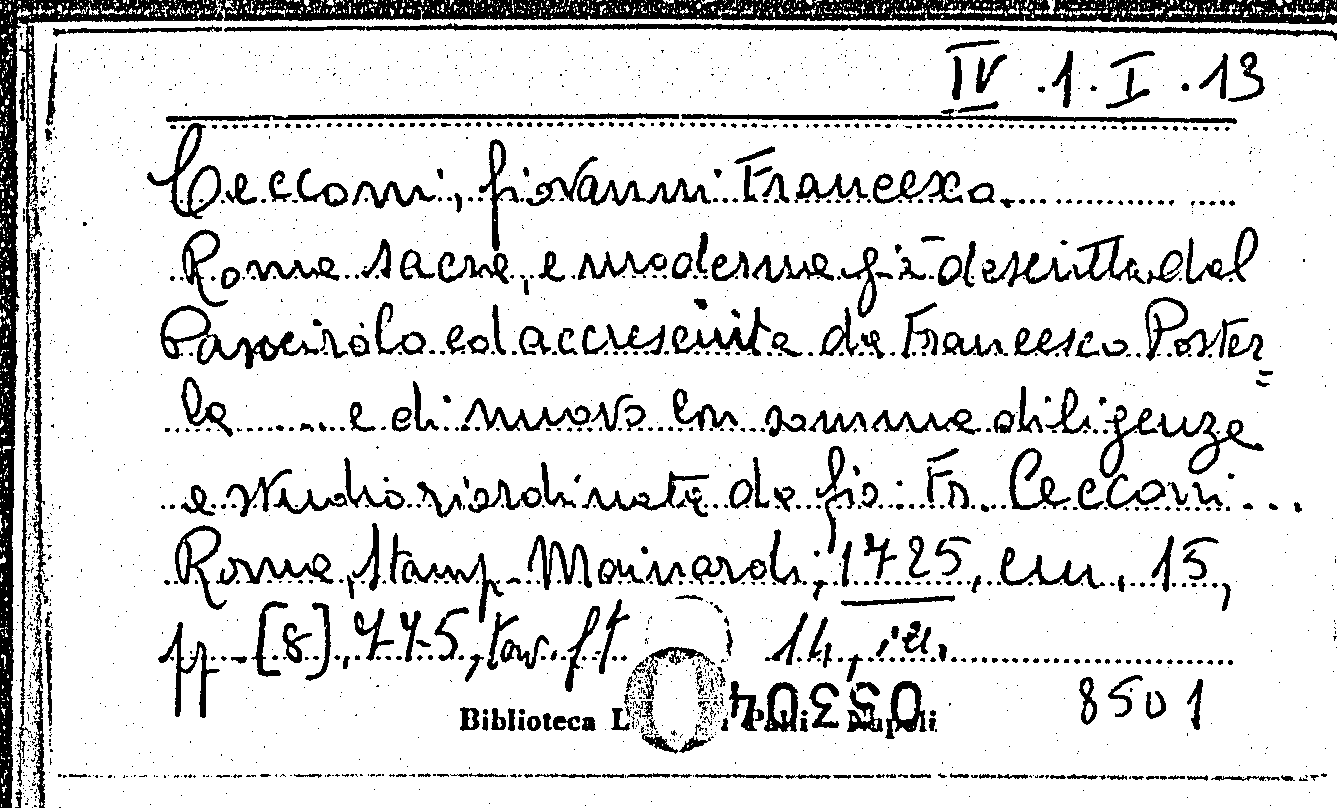 IV.1.I.13
Cecconi, Giovanni Francesco.
Roma sacra, e moderna già descritta dal
Pancirolo ed accresciuta da Francesco Poster=
la ..... e di nuovo con somma diligenza
e studio riordinata da Gio: Fr. Cecconi...
Roma, Stamp. Mainardi, 1725, cm. 15,
pp. [8], 775, tav. f.t. 14, ill.
05304 8501
Biblioteca L Palli Napoli